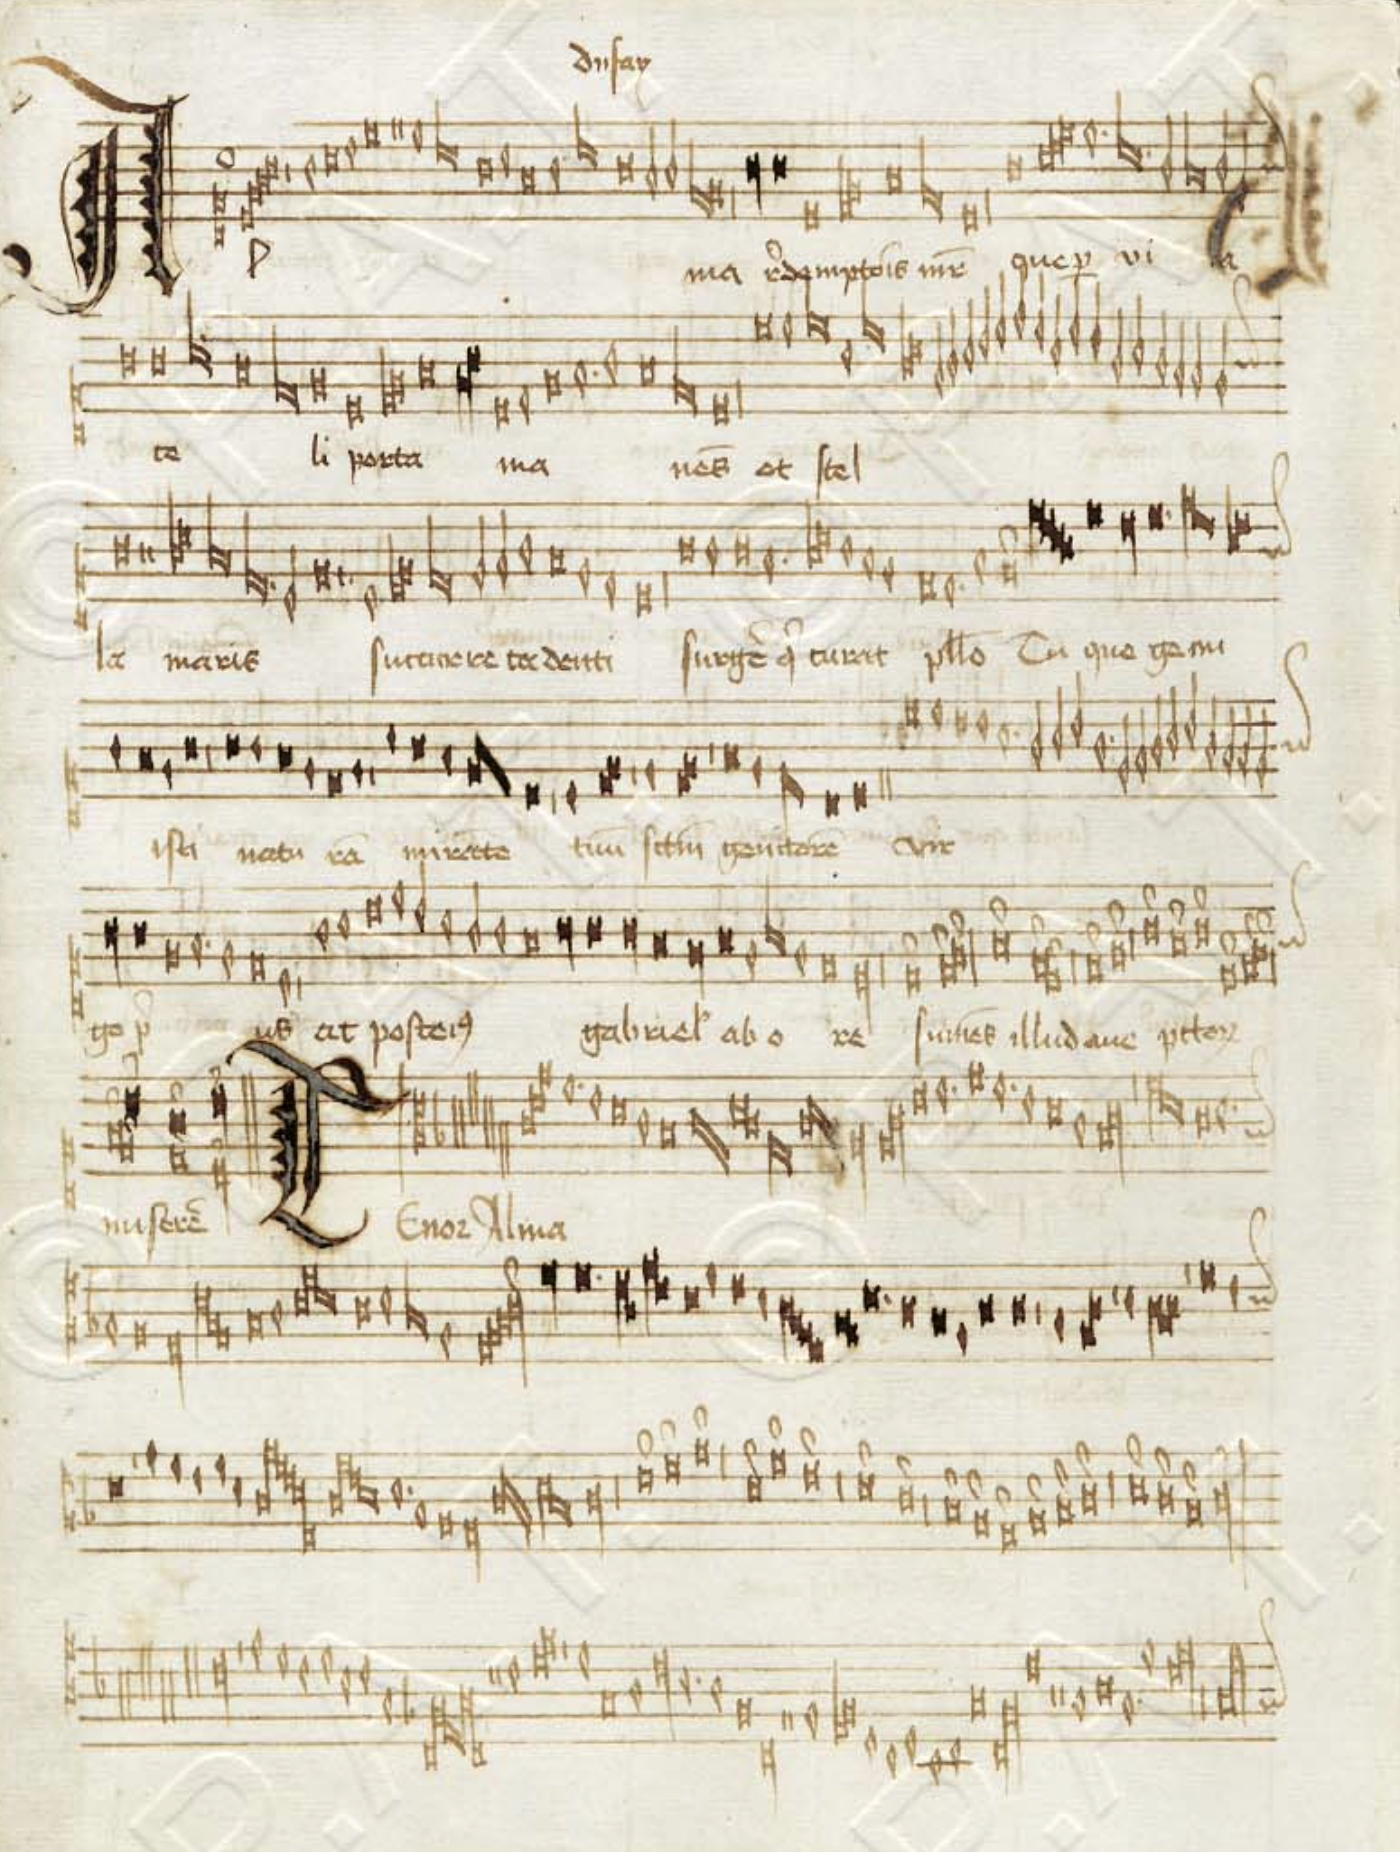 dufay
A l
ma rẽdemptoris nr̃e que p̱ vi a
te li porta ma nẽs et stel
la maris succurre cadenti surgẽ q̃ curat pl̃lo Tu que genu
isti natu rã mirãte tuũ sctm̃ genitorẽ vir
go p̃ us ac posteri9 gabriel' ab o re sumẽs illud ave pctor̃
miserẽ T Enor Alma